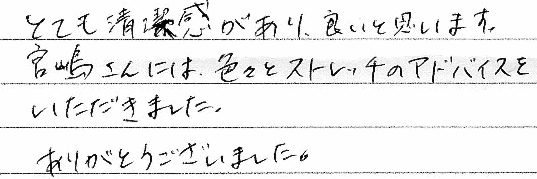 とても清潔感があり、良いと思います。
宮嶋さんには、色々とストレッチのアドバイスを
いただきました。
ありがとうございました。